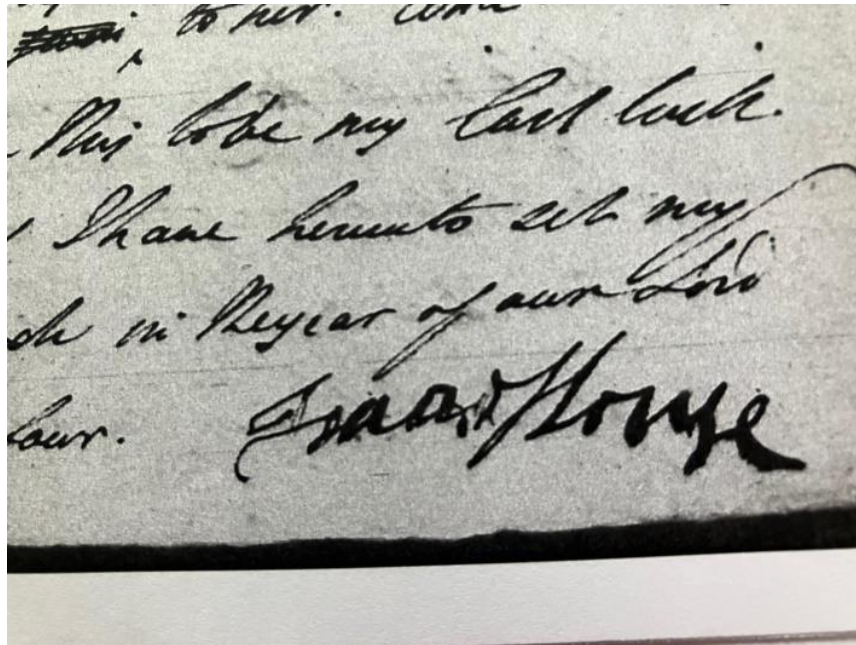 to her.
this to be my last
I have hereunto set my
in the year of our Lord
four. Isaac House